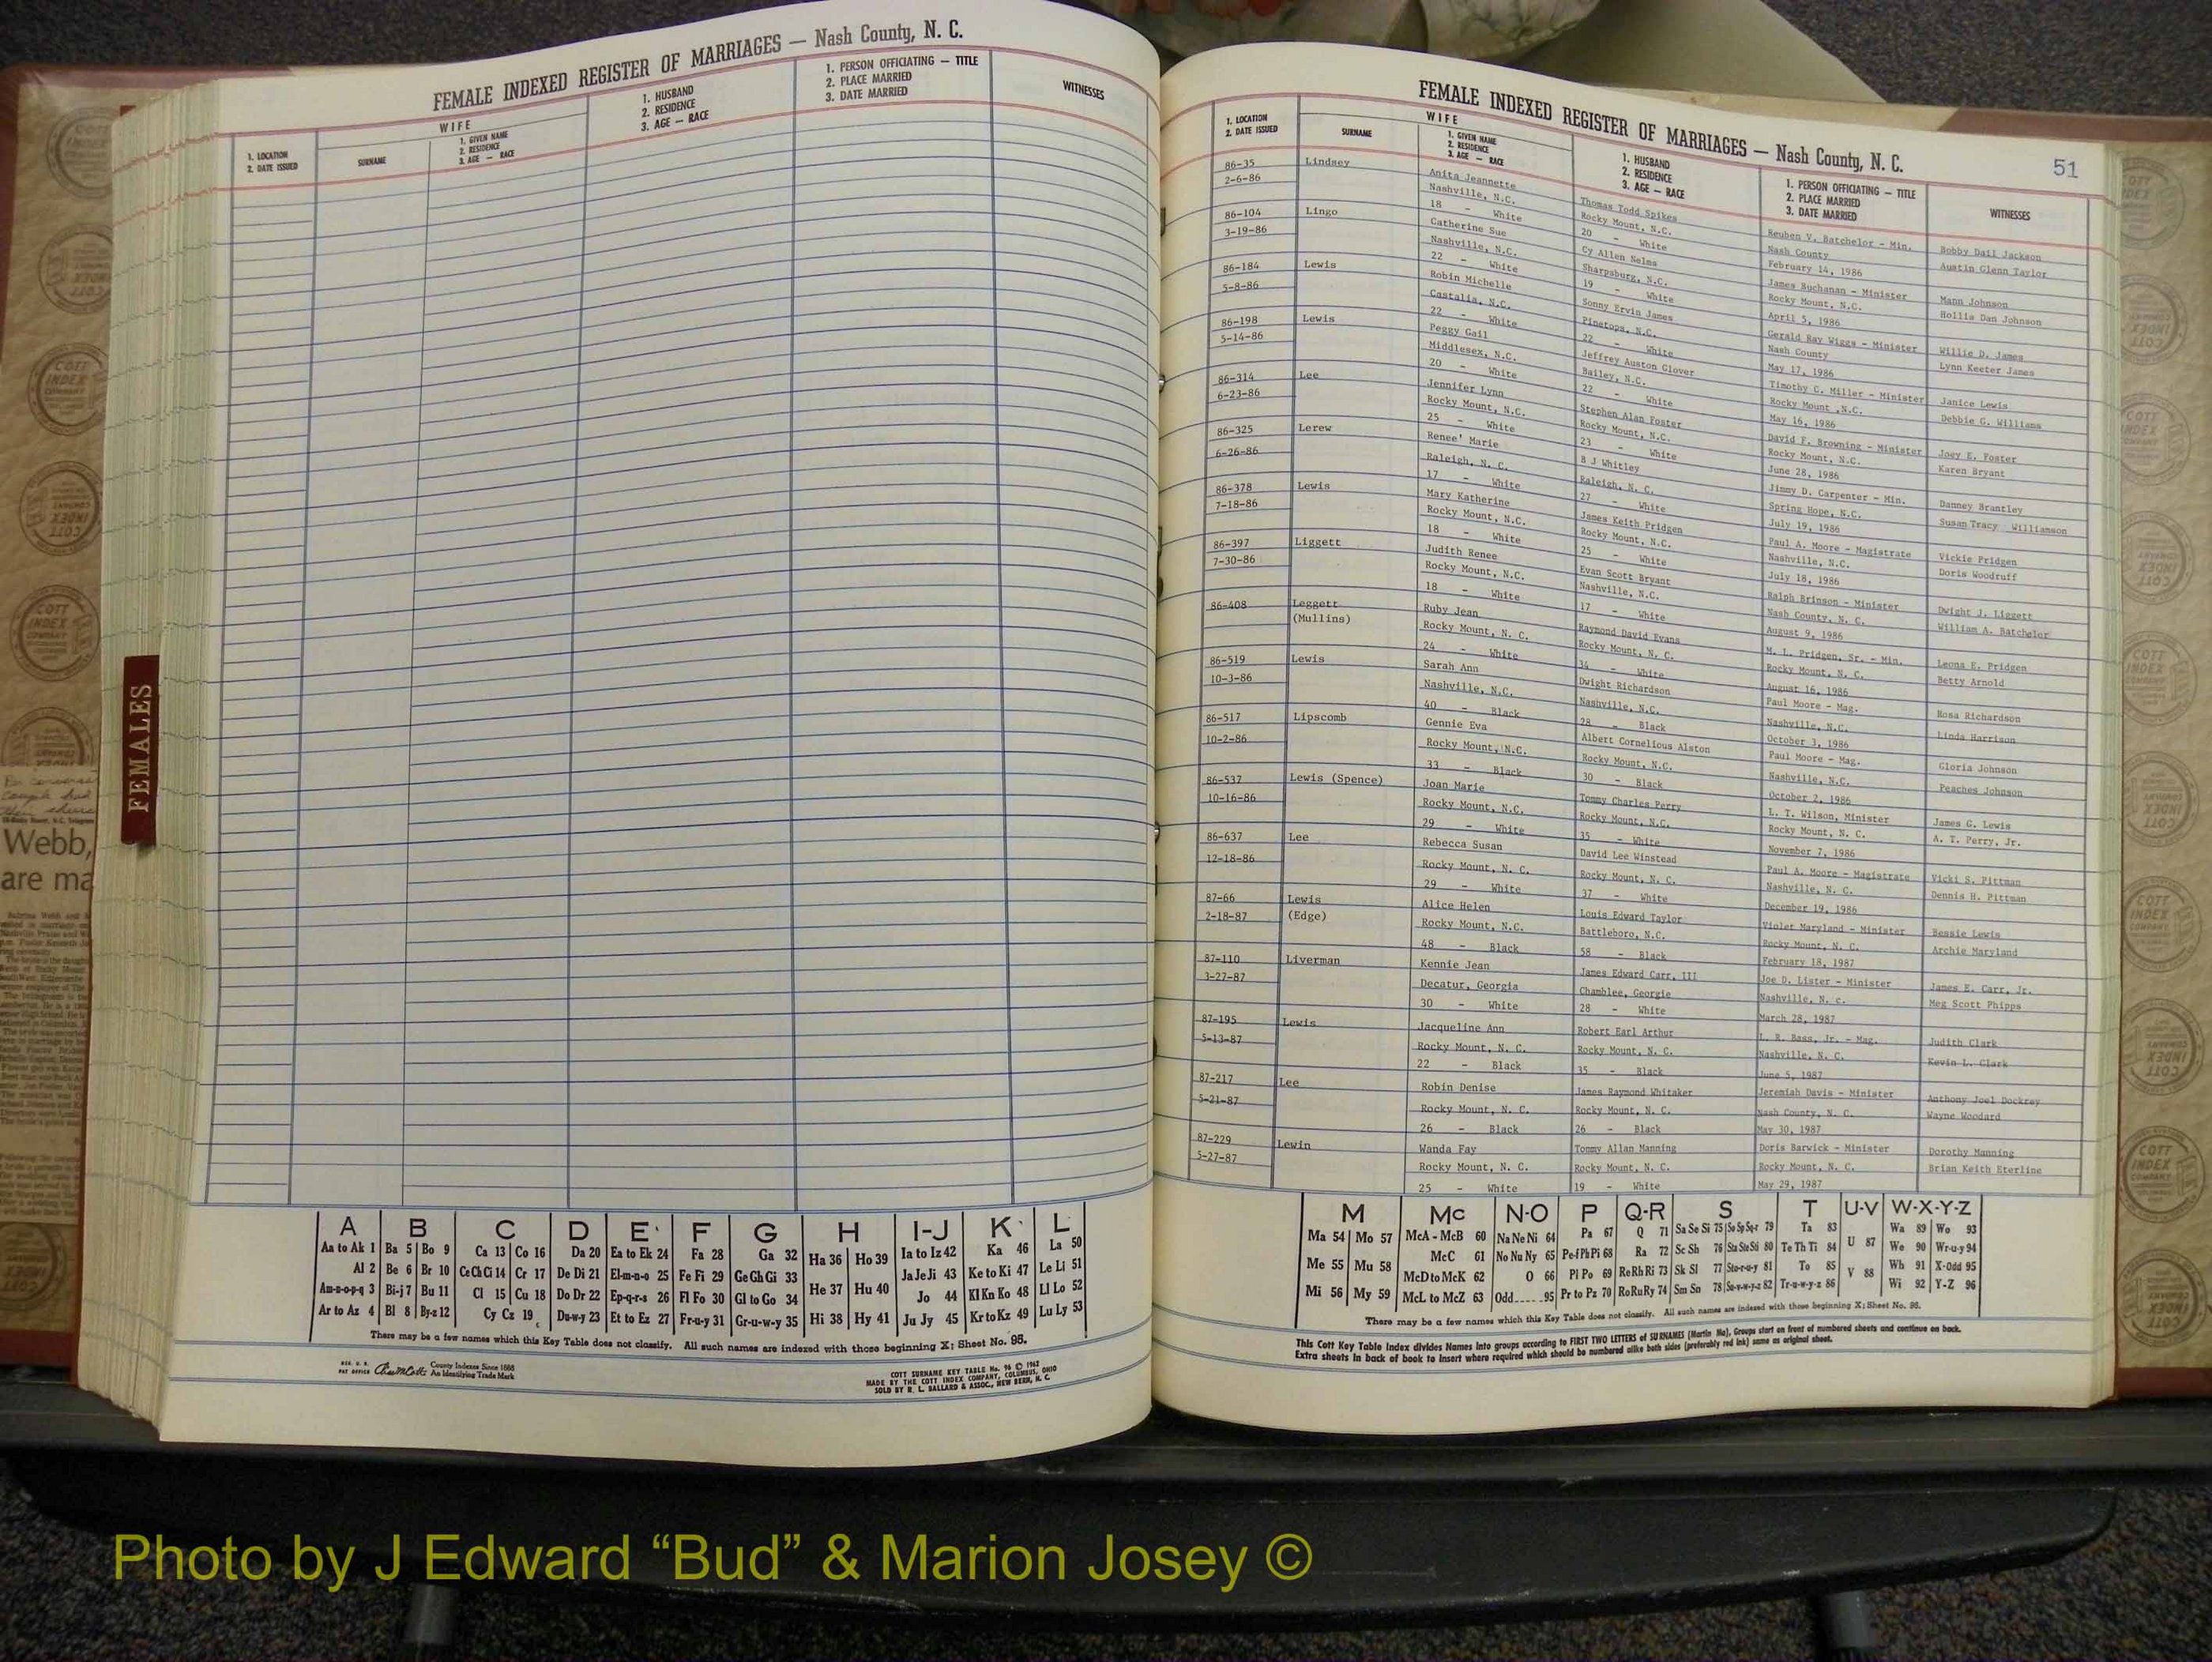 FEMALE INDEXED REGISTER OF MARRIAGES — Nash County, N. C.
1. LOCATION
2. DATE ISSUED
WIFE
SURNAME
1. GIVEN NAME
2. RESIDENCE
3. AGE — RACE
1. HUSBAND
2. RESIDENCE
3. AGE — RACE
1. PERSON OFFICIATING — TITLE
2. PLACE MARRIED
3. DATE MARRIED
WITNESSES
FEMALES
Webb,
are ma
A B C D E F G H I-J K L
Aa to Ak 1 Ba 5 Bo 9 Ca 13 Co 16 Da 20 Ea to Ek 24 Fa 28 Ga 32 Ha 36 Ho 39 Ia to Iz 42 Ka 46 La 50
Al 2 Be 6 Br 10 Ce Ch Ci 14 Cr 17 De Di 21 El-m-n-o 25 Fe Fi 29 Ge Gh Gi 33 He 37 Hu 40 Ja Je Ji 43 Ke to Ki 47 Le Li 51
Am-n-o-p-q 3 Bi-j 7 Bu 11 Cl 15 Cu 18 Do Dr 22 Ep-q-r-s 26 Fl Fo 30 Gl to Go 34 Hi 38 Hy 41 Jo 44 Kl Kn Ko 48 Ll Lo 52
Ar to Az 4 Bl 8 By-z 12 Cy Cz 19 Du-w-y 23 Et to Ez 27 Fr-u-y 31 Gr-u-w-y 35 Ju Jy 45 Kr to Kz 49 Lu Ly 53
There may be a few names which this Key Table does not classify. All such names are indexed with those beginning X; Sheet No. 95.
REG. U. S.
PAT OFFICE
County Indexes Since 1888
An Identifying Trade Mark
COTT SURNAME KEY TABLE No. 96 © 1962
MADE BY THE COTT INDEX COMPANY, COLUMBUS, OHIO
SOLD BY R. L. BALLARD & ASSOC., NEW BERN, N. C.
FEMALE INDEXED REGISTER OF MARRIAGES — Nash County, N. C.
51
1. LOCATION
2. DATE ISSUED
WIFE
SURNAME
1. GIVEN NAME
2. RESIDENCE
3. AGE — RACE
1. HUSBAND
2. RESIDENCE
3. AGE — RACE
1. PERSON OFFICIATING — TITLE
2. PLACE MARRIED
3. DATE MARRIED
WITNESSES
86-35 Lindsey Anita Jeannette Thomas Todd Spikes Reuben V. Batchelor - Min. Bobby Dail Jackson
2-6-86 Nashville, N.C. Rocky Mount, N.C. Nash County Austin Glenn Taylor
18 - White 20 - White February 14, 1986
86-104 Lingo Catherine Sue Cy Allen Nelms James Buchanan - Minister Mann Johnson
3-19-86 Nashville, N.C. Sharpsburg, N.C. Rocky Mount, N.C. Hollis Dan Johnson
22 - White 19 - White April 5, 1986
86-184 Lewis Robin Michelle Sonny Ervin James Gerald Ray Wiggs - Minister Willie D. James
5-8-86 Castalia, N.C. Pinetops, N.C. Nash County Lynn Keeter James
22 - White 22 - White May 17, 1986
86-198 Lewis Peggy Gail Jeffrey Auston Glover Timothy C. Miller - Minister Janice Lewis
5-14-86 Middlesex, N.C. Bailey, N.C. Rocky Mount ,N.C. Debbie G. Williams
20 - White 22 - White May 16, 1986
86-314 Lee Jennifer Lynn Stephen Alan Foster David F. Browning - Minister Joey E. Foster
6-23-86 Rocky Mount, N.C. Rocky Mount, N.C. Rocky Mount, N.C. Karen Bryant
25 - White 23 - White June 28, 1986
86-325 Lerew Renee' Marie B J Whitley Jimmy D. Carpenter - Min. Danney Brantley
6-26-86 Raleigh, N. C. Raleigh, N. C. Spring Hope, N.C. Susan Tracy Williamson
17 - White 27 - White July 19, 1986
86-378 Lewis Mary Katherine James Keith Pridgen Paul A. Moore - Magistrate Vickie Pridgen
7-18-86 Rocky Mount, N.C. Rocky Mount, N.C. Nashville, N.C. Doris Woodruff
18 - White 25 - White July 18, 1986
86-397 Liggett Judith Renee Evan Scott Bryant Ralph Brinson - Minister Dwight J. Liggett
7-30-86 Rocky Mount, N.C. Nashville, N.C. Nash County, N. C. William A. Batchelor
18 - White 17 - White August 9, 1986
86-408 Leggett Ruby Jean Raymond David Evans M. L. Pridgen, Sr. - Min. Leona E. Pridgen
(Mullins) Rocky Mount, N. C. Rocky Mount, N. C. Rocky Mount, N. C. Betty Arnold
24 - White 34 - White August 16, 1986
86-519 Lewis Sarah Ann Dwight Richardson Paul Moore - Mag. Rosa Richardson
10-3-86 Nashville, N.C. Nashville, N.C. Nashville, N.C. Linda Harrison
40 - Black 28 - Black October 3, 1986
86-517 Lipscomb Gennie Eva Albert Cornelious Alston Paul Moore - Mag. Gloria Johnson
10-2-86 Rocky Mount, N.C. Rocky Mount, N.C. Nashville, N.C. Peaches Johnson
33 - Black 30 - Black October 2, 1986
86-537 Lewis (Spence) Joan Marie Tommy Charles Perry L. T. Wilson, Minister James G. Lewis
10-16-86 Rocky Mount, N.C. Rocky Mount, N.C. Rocky Mount, N. C. A. T. Perry, Jr.
29 - White 35 - White November 7, 1986
86-637 Lee Rebecca Susan David Lee Winstead Paul A. Moore - Magistrate Vicki S. Pittman
12-18-86 Rocky Mount, N. C. Rocky Mount, N. C. Nashville, N. C. Dennis H. Pittman
29 - White 37 - White December 19, 1986
87-66 Lewis Alice Helen Louis Edward Taylor Violet Maryland - Minister Bessie Lewis
2-18-87 (Edge) Rocky Mount, N.C. Battleboro, N.C. Rocky Mount, N. C. Archie Maryland
48 - Black 58 - Black February 18, 1987
87-110 Liverman Kennie Jean James Edward Carr, III Joe D. Lister - Minister James E. Carr, Jr.
3-27-87 Decatur, Georgia Chamblee, Georgie Nashville, N. C. Meg Scott Phipps
30 - White 28 - White March 28, 1987
87-195 Lewis Jacqueline Ann Robert Earl Arthur L. R. Bass, Jr. - Mag. Judith Clark
5-13-87 Rocky Mount, N. C. Rocky Mount, N. C. Nashville, N. C. Kevin L. Clark
22 - Black 35 - Black June 5, 1987
87-217 Lee Robin Denise James Raymond Whitaker Jeremiah Davis - Minister Anthony Joel Dockrey
5-21-87 Rocky Mount, N. C. Rocky Mount, N. C. Nash County, N. C. Wayne Woodard
26 - Black 26 - Black May 30, 1987
87-229 Lewin Wanda Fay Tommy Allan Manning Doris Barwick - Minister Dorothy Manning
5-27-87 Rocky Mount, N. C. Rocky Mount, N. C. Rocky Mount, N. C. Brian Keith Eterline
25 - White 19 - White May 29, 1987
M Mc N-O P Q-R S T U-V W-X-Y-Z
Ma 54 Mo 57 McA - McB 60 Na Ne Ni 64 Pa 67 Q 71 Sa Se Si 75 So Sp Sq-r 79 Ta 83 U 87 Wa 89 Wo 93
Me 55 Mu 58 McC 61 No Nu Ny 65 Pe-f Ph Pi 68 Ra 72 Sc Sh 76 Sta Ste Sti 80 Te Th Ti 84 V 88 We 90 Wr-u-y 94
Mi 56 My 59 McD to McK 62 O 66 Pl Po 69 Re Rh Ri 73 Sk Sl 77 Sto-r-u-y 81 To 85 Wh 91 X-Odd 95
McL to McZ 63 Odd.....95 Pr to Pz 70 Ro Ru Ry 74 Sm Sn 78 Su-v-w-y-z 82 Tr-u-w-y-z 86 Wi 92 Y-Z 96
There may be a few names which this Key Table does not classify. All such names are indexed with those beginning X; Sheet No. 95.
This Cott Key Table Index divides Names into groups according to FIRST TWO LETTERS of SURNAMES (Martin Ma), Groups start on front of numbered sheets and continue on back.
Extra sheets in back of book to insert where required which should be numbered alike both sides (preferably red ink) same as original sheet.
Photo by J Edward “Bud” & Marion Josey ©